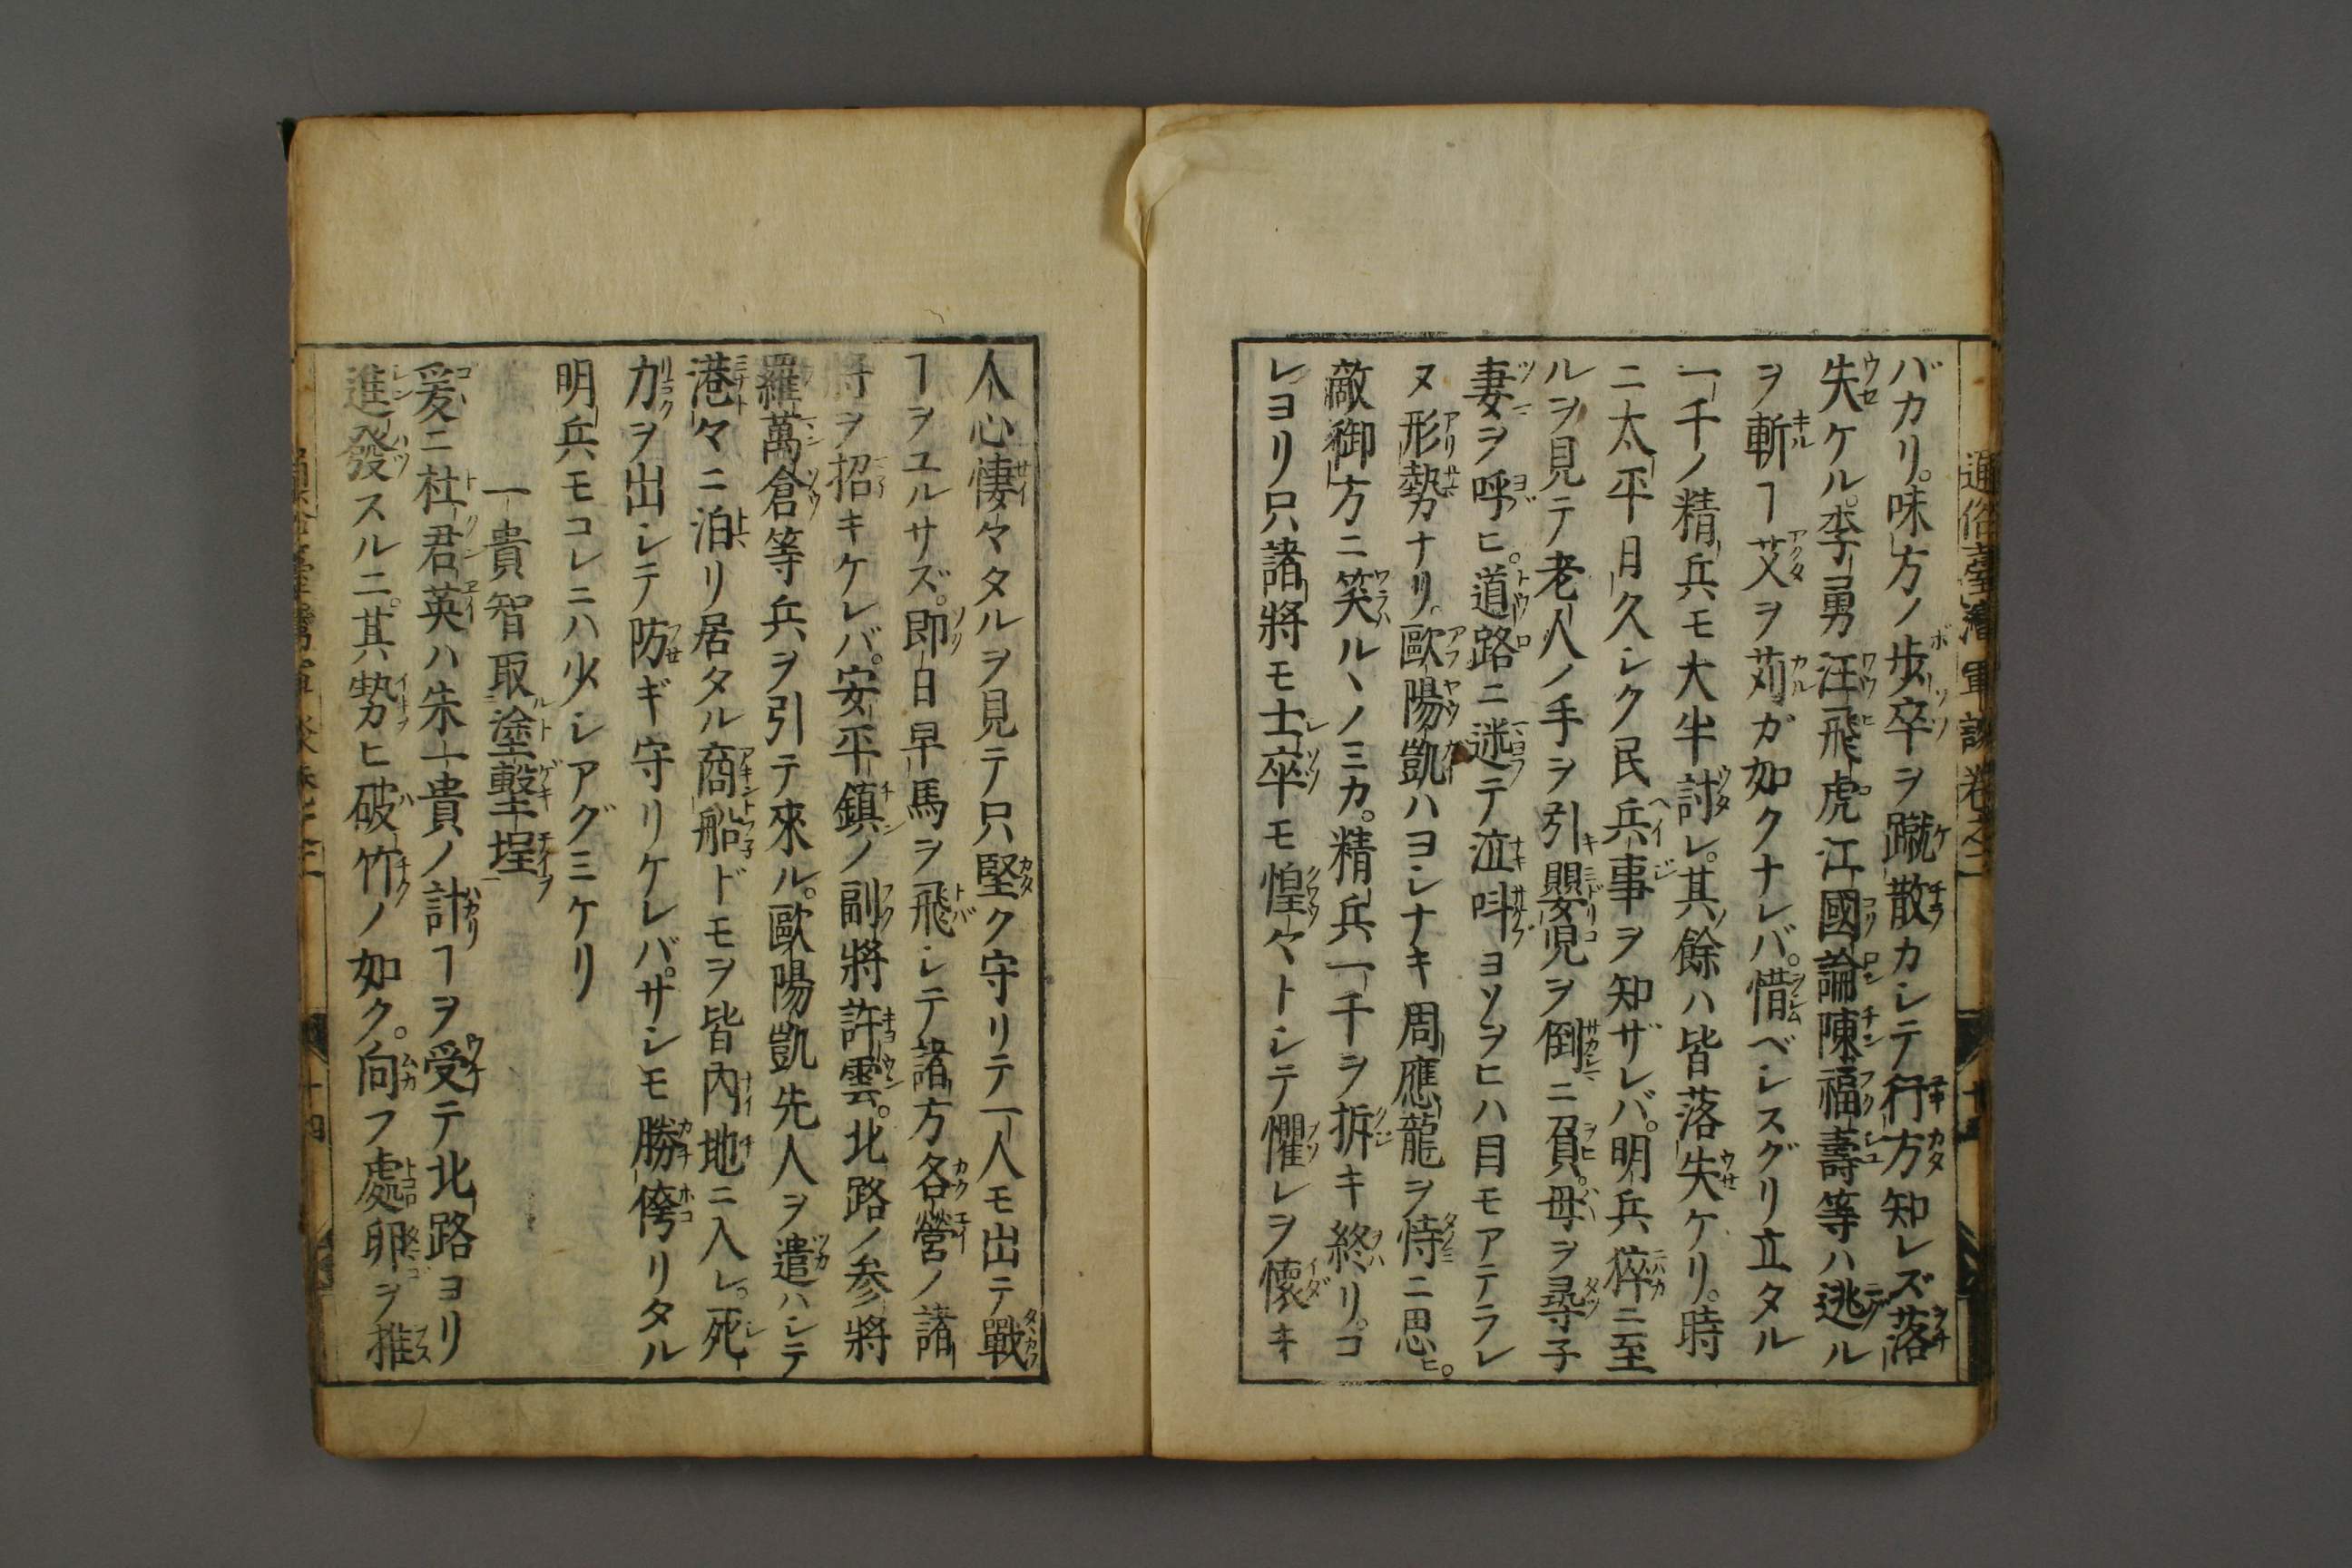 通俗臺灣軍談卷之二
バカリ。味方ノ歩卒ヲ蹴散カシテ行方知レズ落
失ケル。李勇汪飛虎江國論陳福壽等ハ逃ル
ヲ斬ヿ艾ヲ苅ガ如クナレバ。惜ベシスグリ立タル
一千ノ精兵モ大半討レ。其餘ハ皆落失ケリ。時
ニ太平日久シク民兵事ヲ知ザレバ。明兵猝ニ至
ルヲ見テ老人ノ手ヲ引嬰児ヲ倒ニ負。母ヲ尋子
妻ヲ呼ヒ。道路ニ迷テ泣呌ヨソヲヒハ目モアテラレ
ヌ形勢ナリ。歐陽凱ハヨシナキ周應龍ヲ恃ニ思ヒ。
敵御方ニ笑ルヽノミカ。精兵一千ヲ折キ終リ。コ
レヨリ只諸將モ士卒モ惶々トシテ懼レヲ懷キ
人心悽々タルヲ見テ只堅ク守リテ一人モ出テ戰
ヿヲユルサズ。即日早馬ヲ飛シテ諸方各營ノ諸
將ヲ招キケレバ。安平鎮ノ副將許雲。北路ノ参將
羅萬倉等兵ヲ引テ來ル。歐陽凱先人ヲ遣ハシテ
港々ニ泊リ居タル商船ドモヲ皆內地ニ入レ。死
力ヲ出シテ防ギ守リケレバ。サシモ勝侉リタル
明兵モコレニハ少シアグミケリ
一貴智取塗墼埕
爰ニ杜君英ハ朱一貴ノ計ヿヲ受テ北路ヨリ
進發スルニ。其勢ヒ破竹ノ如ク。向フ處卵ヲ推
十四